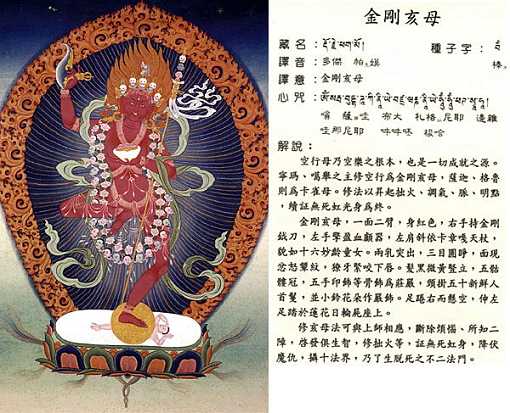 金剛亥母
藏名：རྡོ་རྗེ་ཕག་མོ། 種子字：
譯音：多傑 帕 嫫 棒
譯意：金剛亥母
心咒：
嗡 薩 哇 布大 札格 尼耶 邊雜
哇那尼耶 吽吽呸 梭哈
解說：
空行母乃空樂之根本，也是一切成就之源。
寧瑪、噶舉之主修空行為金剛亥母，薩迦、格魯
則爲卡雀母。修法以昇起拙火、調氣、脈、明點
，續証無死虹光身爲終。
金剛亥母，一面二臂，身紅色，右手持金剛
鉞刀，左手擎盈血顱器，左肩斜依卡章嘎天杖，
貌如十六妙齡童女。兩乳突出，三目圓睜，面現
忿怒顰紋，獠牙緊咬下唇。髮黑微黃豎立，五骷
髏冠，五手印飾等骨飾爲莊嚴，頸掛五十新鮮人
首鬘，並小鈴花朵作嚴飾。足踡右而懸空，伸左
足踏於蓮花日輪屍座上。
修亥母法可與上師相應，斷除煩惱、所知二
障，啓發俱生智，修拙火等，証無死虹身，降伏
魔仇，攝十法界，乃了生脫死之不二法門。